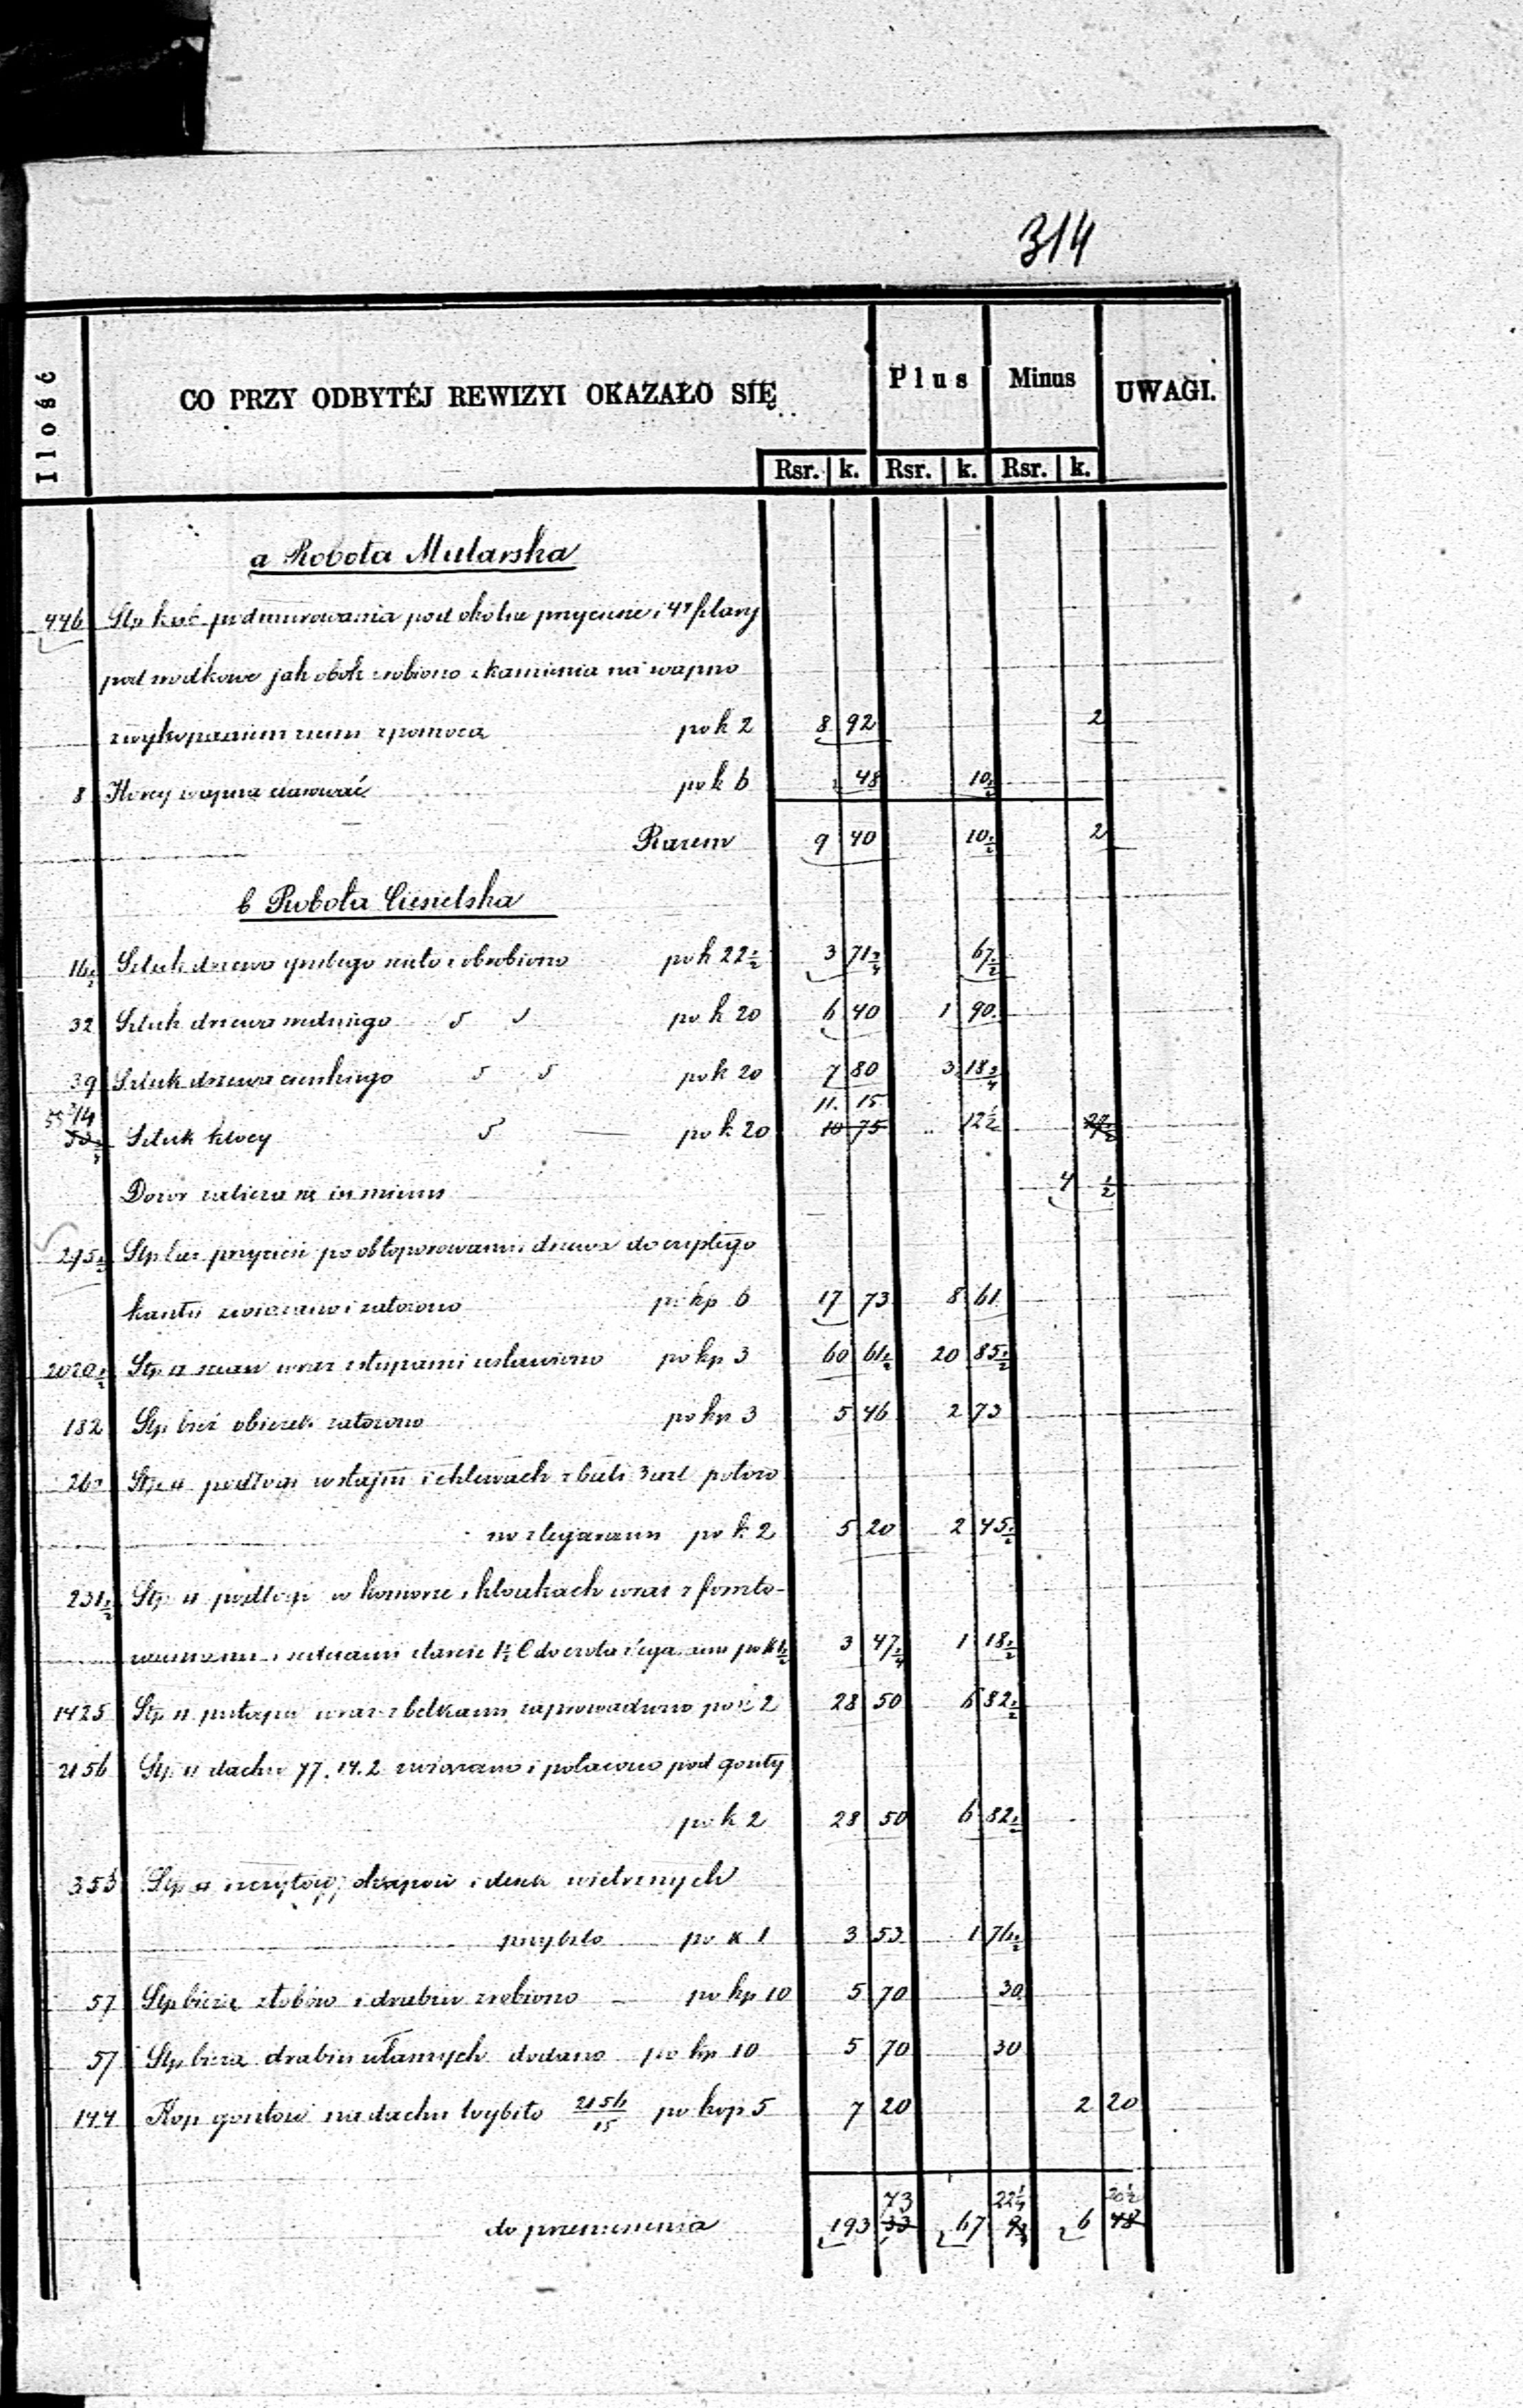 314
Ilość CO PRZY ODBYTÉJ REWIZYI OKAZAŁO SIĘ Plus Minus UWAGI.
Rsr. k. Rsr. k. Rsr. k.
a Robota Mularska
446 Stp kub podmurowania pod okolne przyciesie i 4 filary
pod srodkowe jak obok zrobiono z kamienia na wapno
z wykopaniem ziemi z pomocą po k 2 8 92 2
8 Korcy wapna lasować po k 6 48 10½
Razem 9 40 10½ 2
b Robota Ciesielska
16½ Sztuk drzewa grubego ścięto i obrobiono po k 22½ 3 71¾ 67½
32 Sztuk drzewa średniego po k 20 6 40 1 90
39 Sztuk drzewa cienkiego po k 20 7 80 3 18¾
11. 15
55¾ Sztuk klocy po k 20 10 75 12½
Dozor zalicza się in minus 4 ½
295½ Stp bar przycieśi po obtoporowaniu drzewa do ciepłego
kantu związano i założono po kp 6 17 73 8 61
2020½ Stp □ ścian wraz z słupami ustawiono po kp 3 60 61½ 20 85½
182 Stp bież obiczek założono po kp 3 5 46 2 73
260 Stp □ podłogi w stajni i chlewach z bali 3 cal położo
no z legarami po k 2 5 20 2 45½
231½ Stp □ podłogi w komorze i wraz z
po k 1½ 3 47¼ 1 18½
1425 Stp □ pułapu wraz z belkami zaprowadzono po k 2 28 50 6 82½
2156 Stp □ dachu 77.14.2 związano i połacono pod gonty
po k 2 28 50 6 82½
353 Stp □ szczytów, okapów i desek wietrznych
przybito po k 1 3 53 1 76½
57 Stp bieża żłobów i drabin zrobiono po kp 10 5 70 30
57 Stp bieża drabin dodano po kp 10 5 70 30
144 Kop gontów na dachu wybito 2156/15 po kop 5 7 20 2 20
73 22¼ 20½
do przeniesienia 193 33 67 6 48